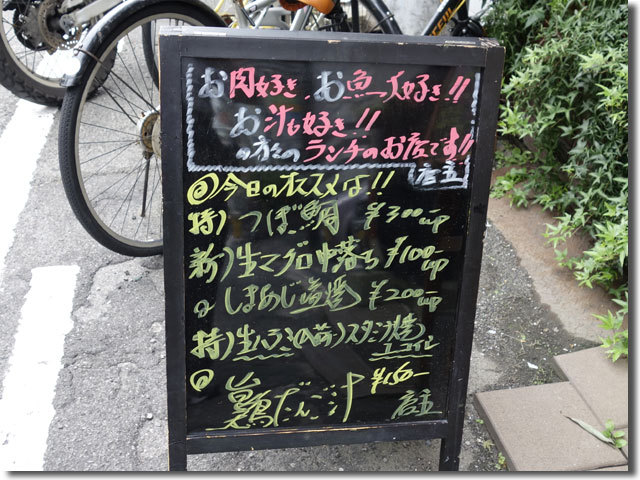 お肉好き、お魚大好き!!
お汁も好き!!
の方々のランチのお店です!!
店主
◎今日のオススメは!!
特)つぼ鯛 ¥300-up
新)生マグロ中落ち ¥100-up
しまあじ ¥200-up
特)生ハラミ(1人前)スタミナ焼
1コイン
鶏だんご汁 ¥150-
店主